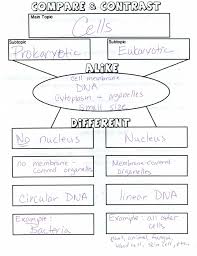 COMPARE & CONTRAST
Main Topic
Cells
Subtopic
Prokaryotic
Subtopic
Eukaryotic
ALIKE
Cell membrane
DNA
Cytoplasm + organelles
small size
DIFFERENT
No nucleus
Nucleus
no membrane-
covered organelles
Membrane-
covered organelles
circular DNA
linear DNA
Example:
Bacteria
Example: all other
cells
plant, animal, human,
blood cells, skin cell, etc.